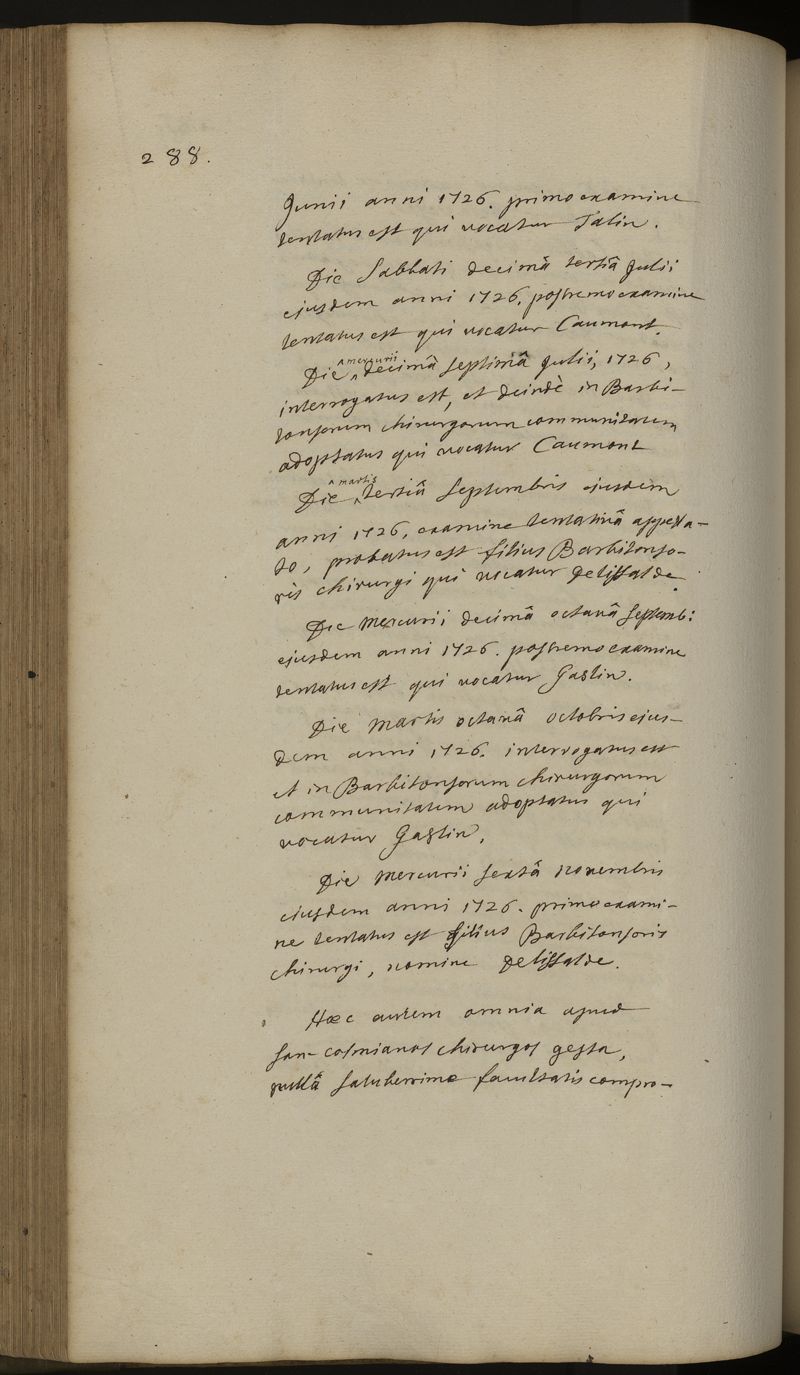 288.
Junii anni 1726. primo examine
tentatus est qui vocatur Talin.
Die Sabbati decimâ tertiâ Julii
ejusdem anni 1726, postremo examine
tentatus est qui vocatur Caumont.
Die ^mercurii decimâ septimâ Julii, 1726,
interrogatus est, et deindè in Barbi-
tonsorum chirurgorum communitatem
adoptatus qui vocatur Caumont
Die ^martis tertiâ septembris ejusdem
anni 1726, examine tentativâ appella-
to, probatus est filius Barbitonso-
ris chirurgi qui vocatur Delissalde.
Die mercurii decimâ octavâ septemb:
ejusdem anni 1726. postremo examine
tentatus est qui vocatur Gaslin.
Die martis octavâ octobris ejus-
dem anni 1726. interrogatus est
et in Barbitonsorum chirurgorum
communitatem adoptatus qui
vocatur Gaslin.
Die mercurii sextâ novembris
ejusdem anni 1726. primo exami-
ne tentatus est filius Barbitonsoris
chirurgi, nomine Delissalde.
Hæc autem omnia apud
san-cosmianos chirurgos gesta,
nullâ saluberrimæ facultatis compro-